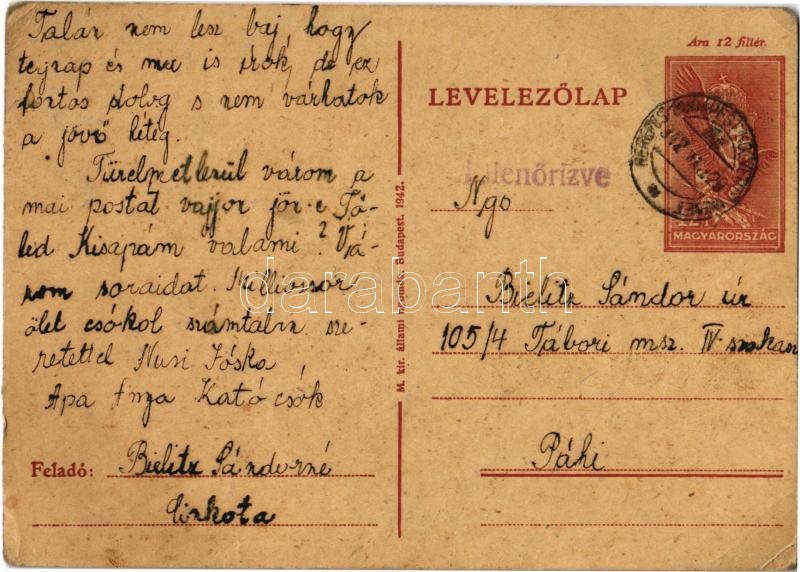 Talán nem lesz baj, hogy
tegnap és ma is irok, de ez
fontos dolog s nem várhatok
a jövő hétig.
Türelmetlenül várom a
mai postát vajjon jön-e Tő-
led Kisapám valami? Vá-
rom soraidat. Milliószor
ölel csókol számtalan sze-
retettel Nusi Jóska
Apa Anya Kató csók
Feladó: Bielitz Sándorné
Cinkota
M. kir. állami nyomda, Budapest. 1942.
Ára 12 fillér.
LEVELEZŐLAP
Ellenőrizve
MAGYARORSZÁG
Ngo
Bielitz Sándor úr
105/4 Tábori msz. IV. szakasz
Páhi
darabanth